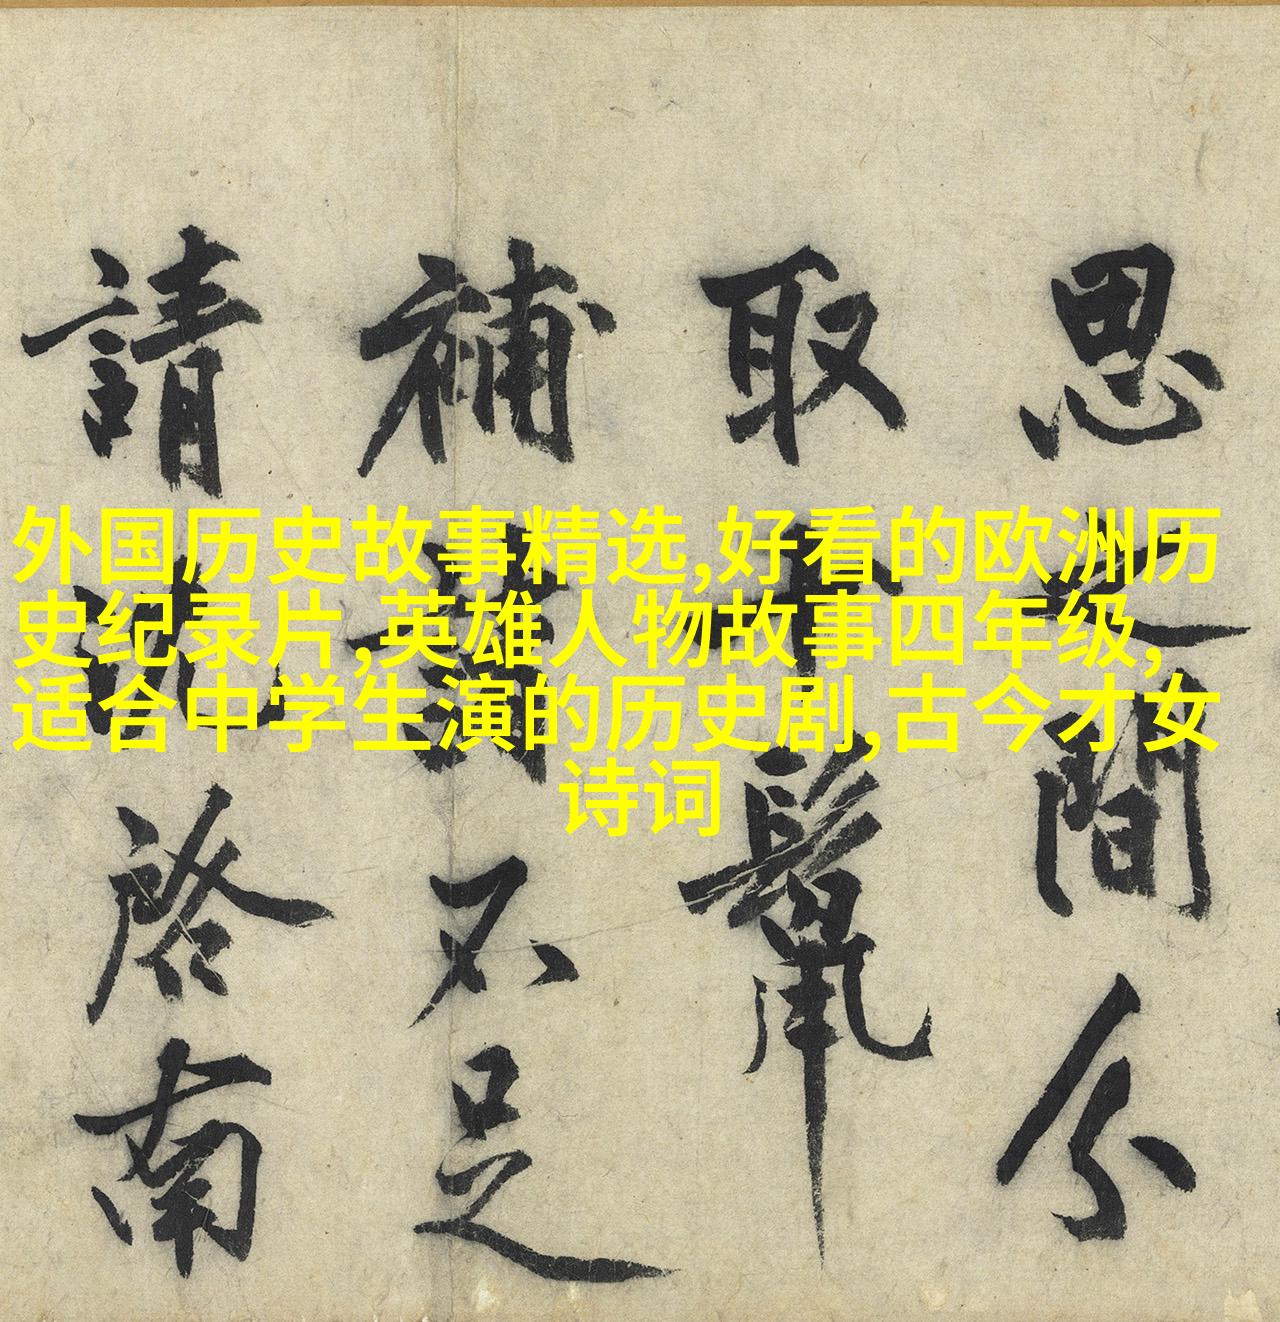 外国历史故事精选,好看的欧洲历
史纪录片,英雄人物故事四年级,
适合中学生演的历史剧,古今才女
诗词
思之間分
取十鬣
補不足
請沈啓南